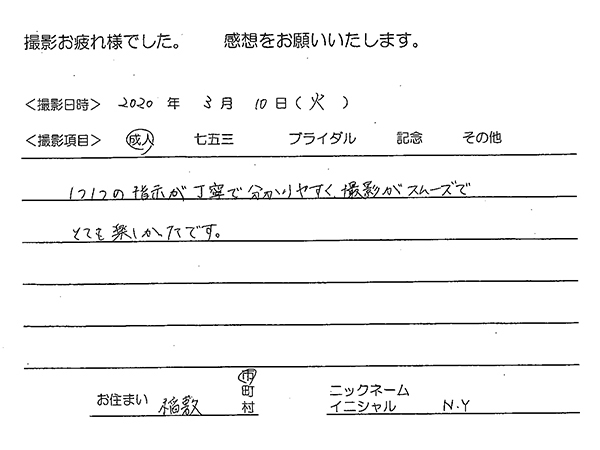 撮影お疲れ様でした。 感想をお願いいたします。
<撮影日時> 2020 年 3 月 10 日 (火)
<撮影項目> 成人 七五三 ブライダル 記念 その他
1つ1つの指示が丁寧で分かりやすく、撮影がスムーズで
とても楽しかったです。
お住まい 稲敷 市 町 村 ニックネーム イニシャル N.Y